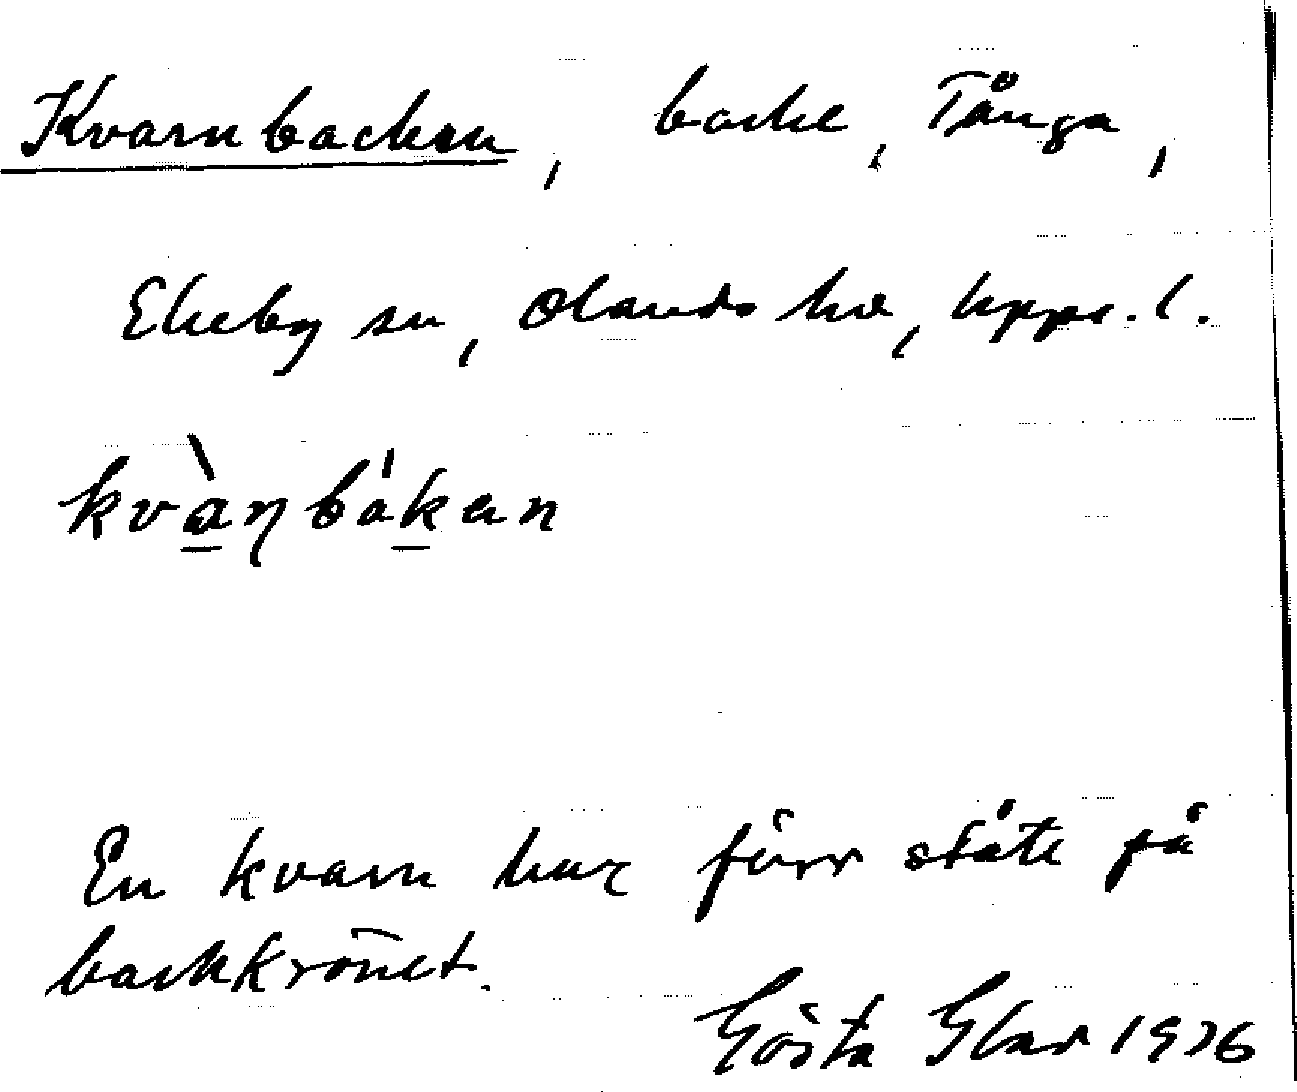 Kvarnbacken, backe, Tånga,
Ekeby sn, Olands hd, Upps. l.
kvàṇbákan
En kvarn har förr stått på
backkrönet.
Gösta Glad 1936